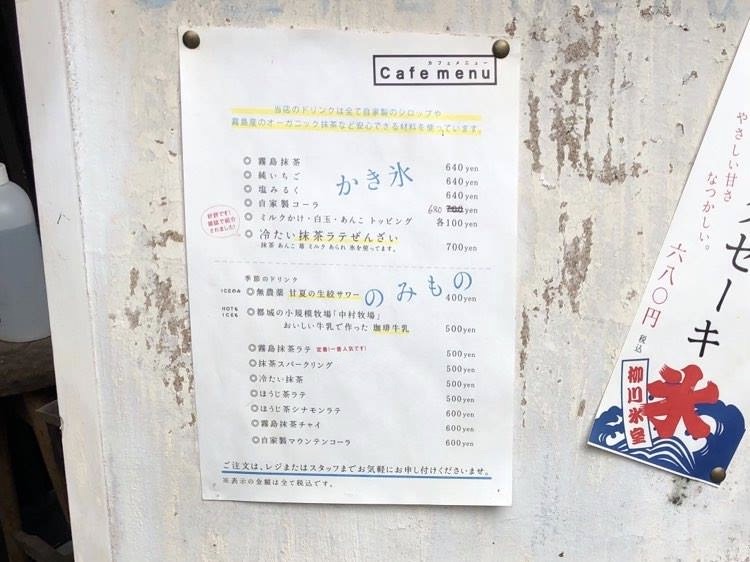 カフェメニュー
Cafe menu
当店のドリンクは全て自家製のシロップや
霧島産のオーガニック抹茶など安心できる材料を使っています。
かき氷
◎ 霧島抹茶 640yen
◎ 純いちご 640yen
◎ 塩みるく 640yen
◎ 自家製コーラ 680 700yen
◎ ミルクかけ・白玉・あんこ トッピング 各100yen
好評です!
雑誌で紹介
されました!
◎ 冷たい 抹茶ラテぜんざい 700yen
抹茶 あんこ 苺 ミルク あられ 氷を使ってます。
のみもの
季節のドリンク
ICEのみ ◎無農薬 甘夏の生絞サワー 400yen
HOT& ICE& ◎都城の小規模牧場「中村牧場」
おいしい牛乳で作った 珈琲牛乳 500yen
◎霧島抹茶ラテ 定番!一番人気です! 500yen
◎抹茶スパークリング 500yen
◎冷たい抹茶 500yen
◎ほうじ茶ラテ 500yen
◎ほうじ茶シナモンラテ 600yen
◎霧島抹茶チャイ 600yen
◎自家製マウンテンコーラ 600yen
ご注文は、レジまたはスタッフまでお気軽にお申し付けくださいませ。
※表示の金額は全て税込です。
やさしい甘さ
なつかしい。
セーキ
六八〇円 税込
氷
柳川氷室